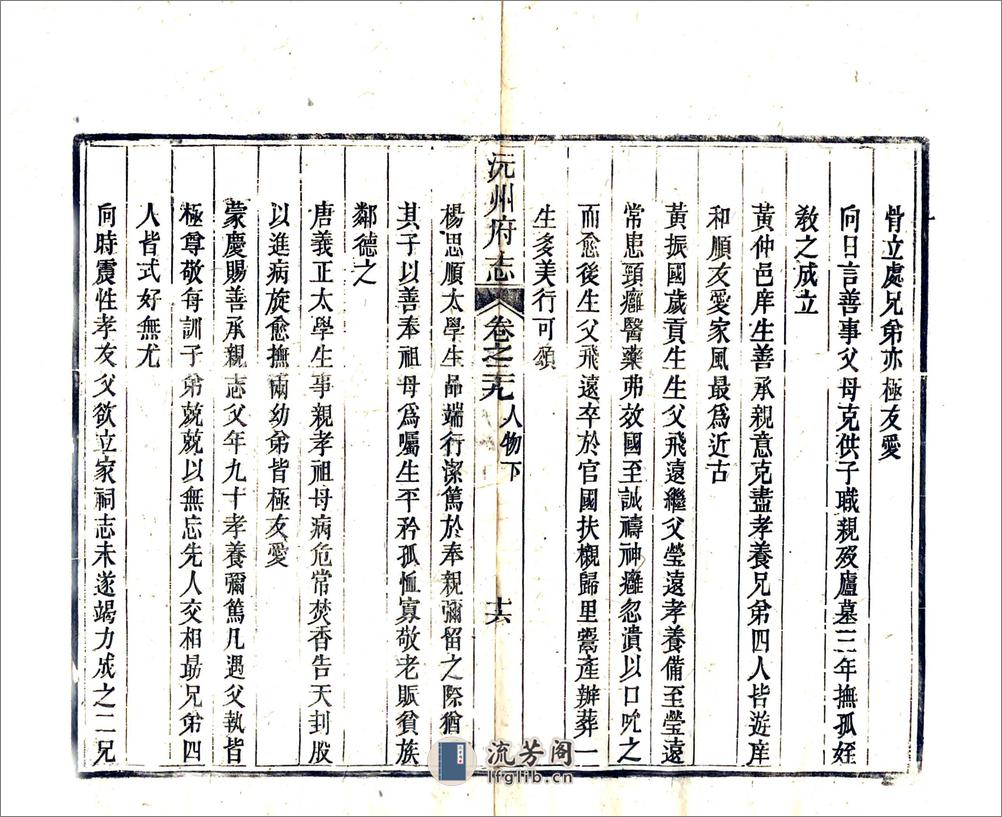 骨立處兄弟亦極友愛
向日言善事父母克供子職親歿廬墓三年撫孤姪
敎之成立
黃仲邑庠生善承親意克盡孝養兄弟四人皆遊庠
和順友愛家風最爲近古
黃振國歲貢生生父飛遠繼父瑩遠孝養備至瑩遠
常患頸癰醫藥弗效國至誠禱神癰忽潰以口吮之
而愈後生父飛遠卒於官國扶櫬歸里鬻產辦葬一
生多美行可頌
沅州府志 卷之二十九 人物下 十六
楊思順太學生品端行潔篤於奉親彌留之際猶
其子以善奉祖母爲囑生平矜孤恤寡敬老賑貧族
鄰德之
唐義正太學生事親孝祖母病危常焚香告天刲股
以進病旋愈撫兩幼弟皆極友愛
蒙慶賜善承親志父年九十孝養彌篤凡遇父執皆
極尊敬母訓子弟兢兢以無忘先人交相勗兄弟四
人皆式好無尤
向時震性孝友父欲立家祠志未遂竭力成之二兄
流芳阁
lfglib.cn